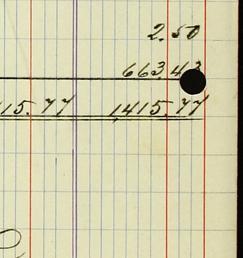 2.50
663.43
15.77 1415.77